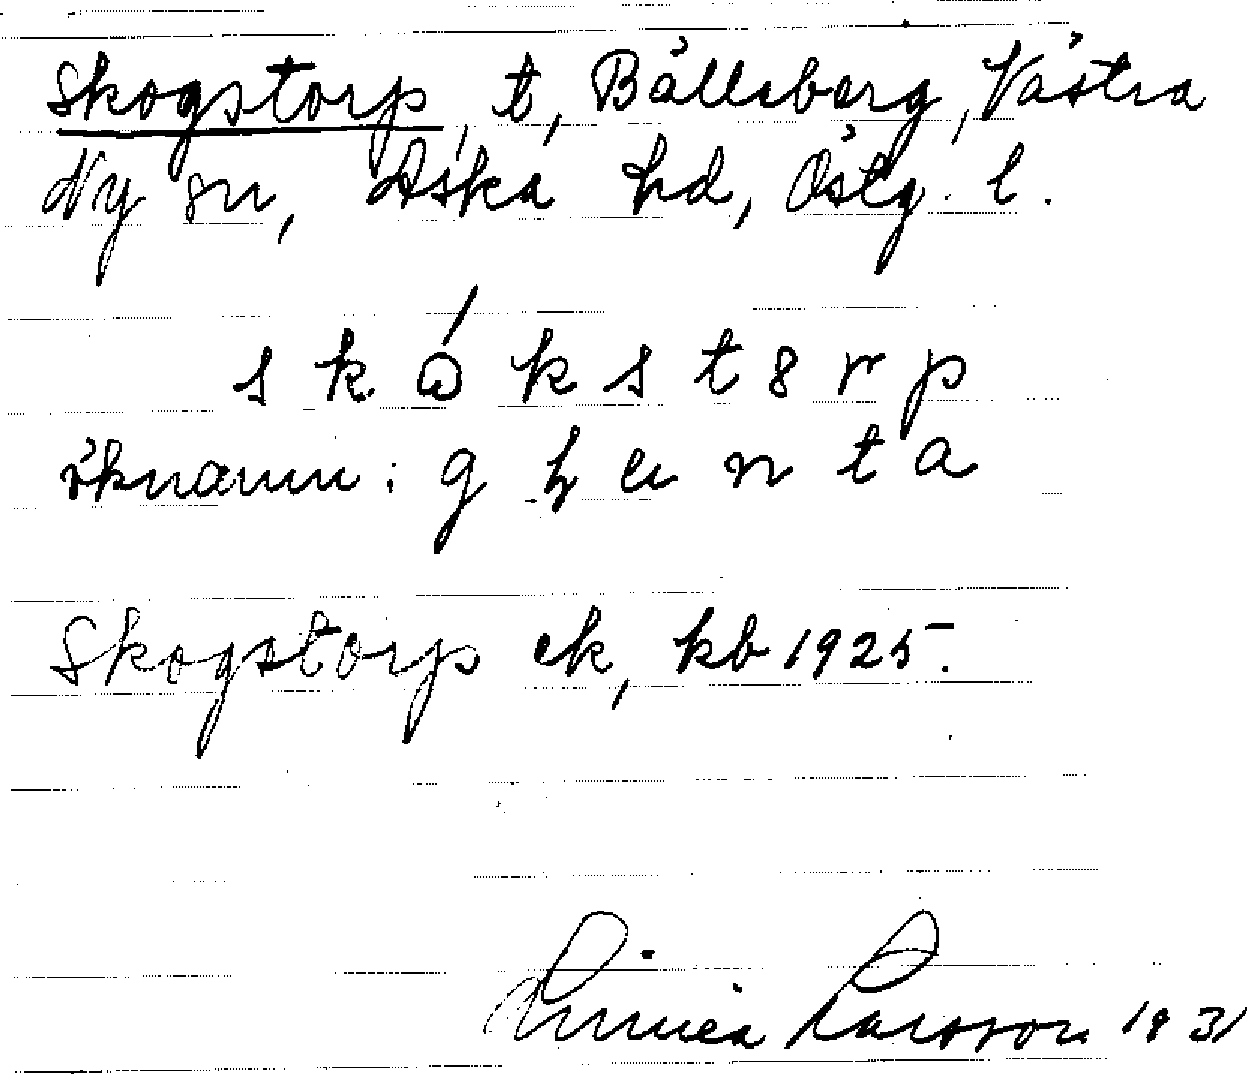 Skogstorp, t, Bällsberg, Västra
Ny sn, Aska hd, Östg. l.
s k ó k s t 8 r p
öknamn: g l n t a
Skogstorp ek, kb 1925.
Linnea Larsson 1931